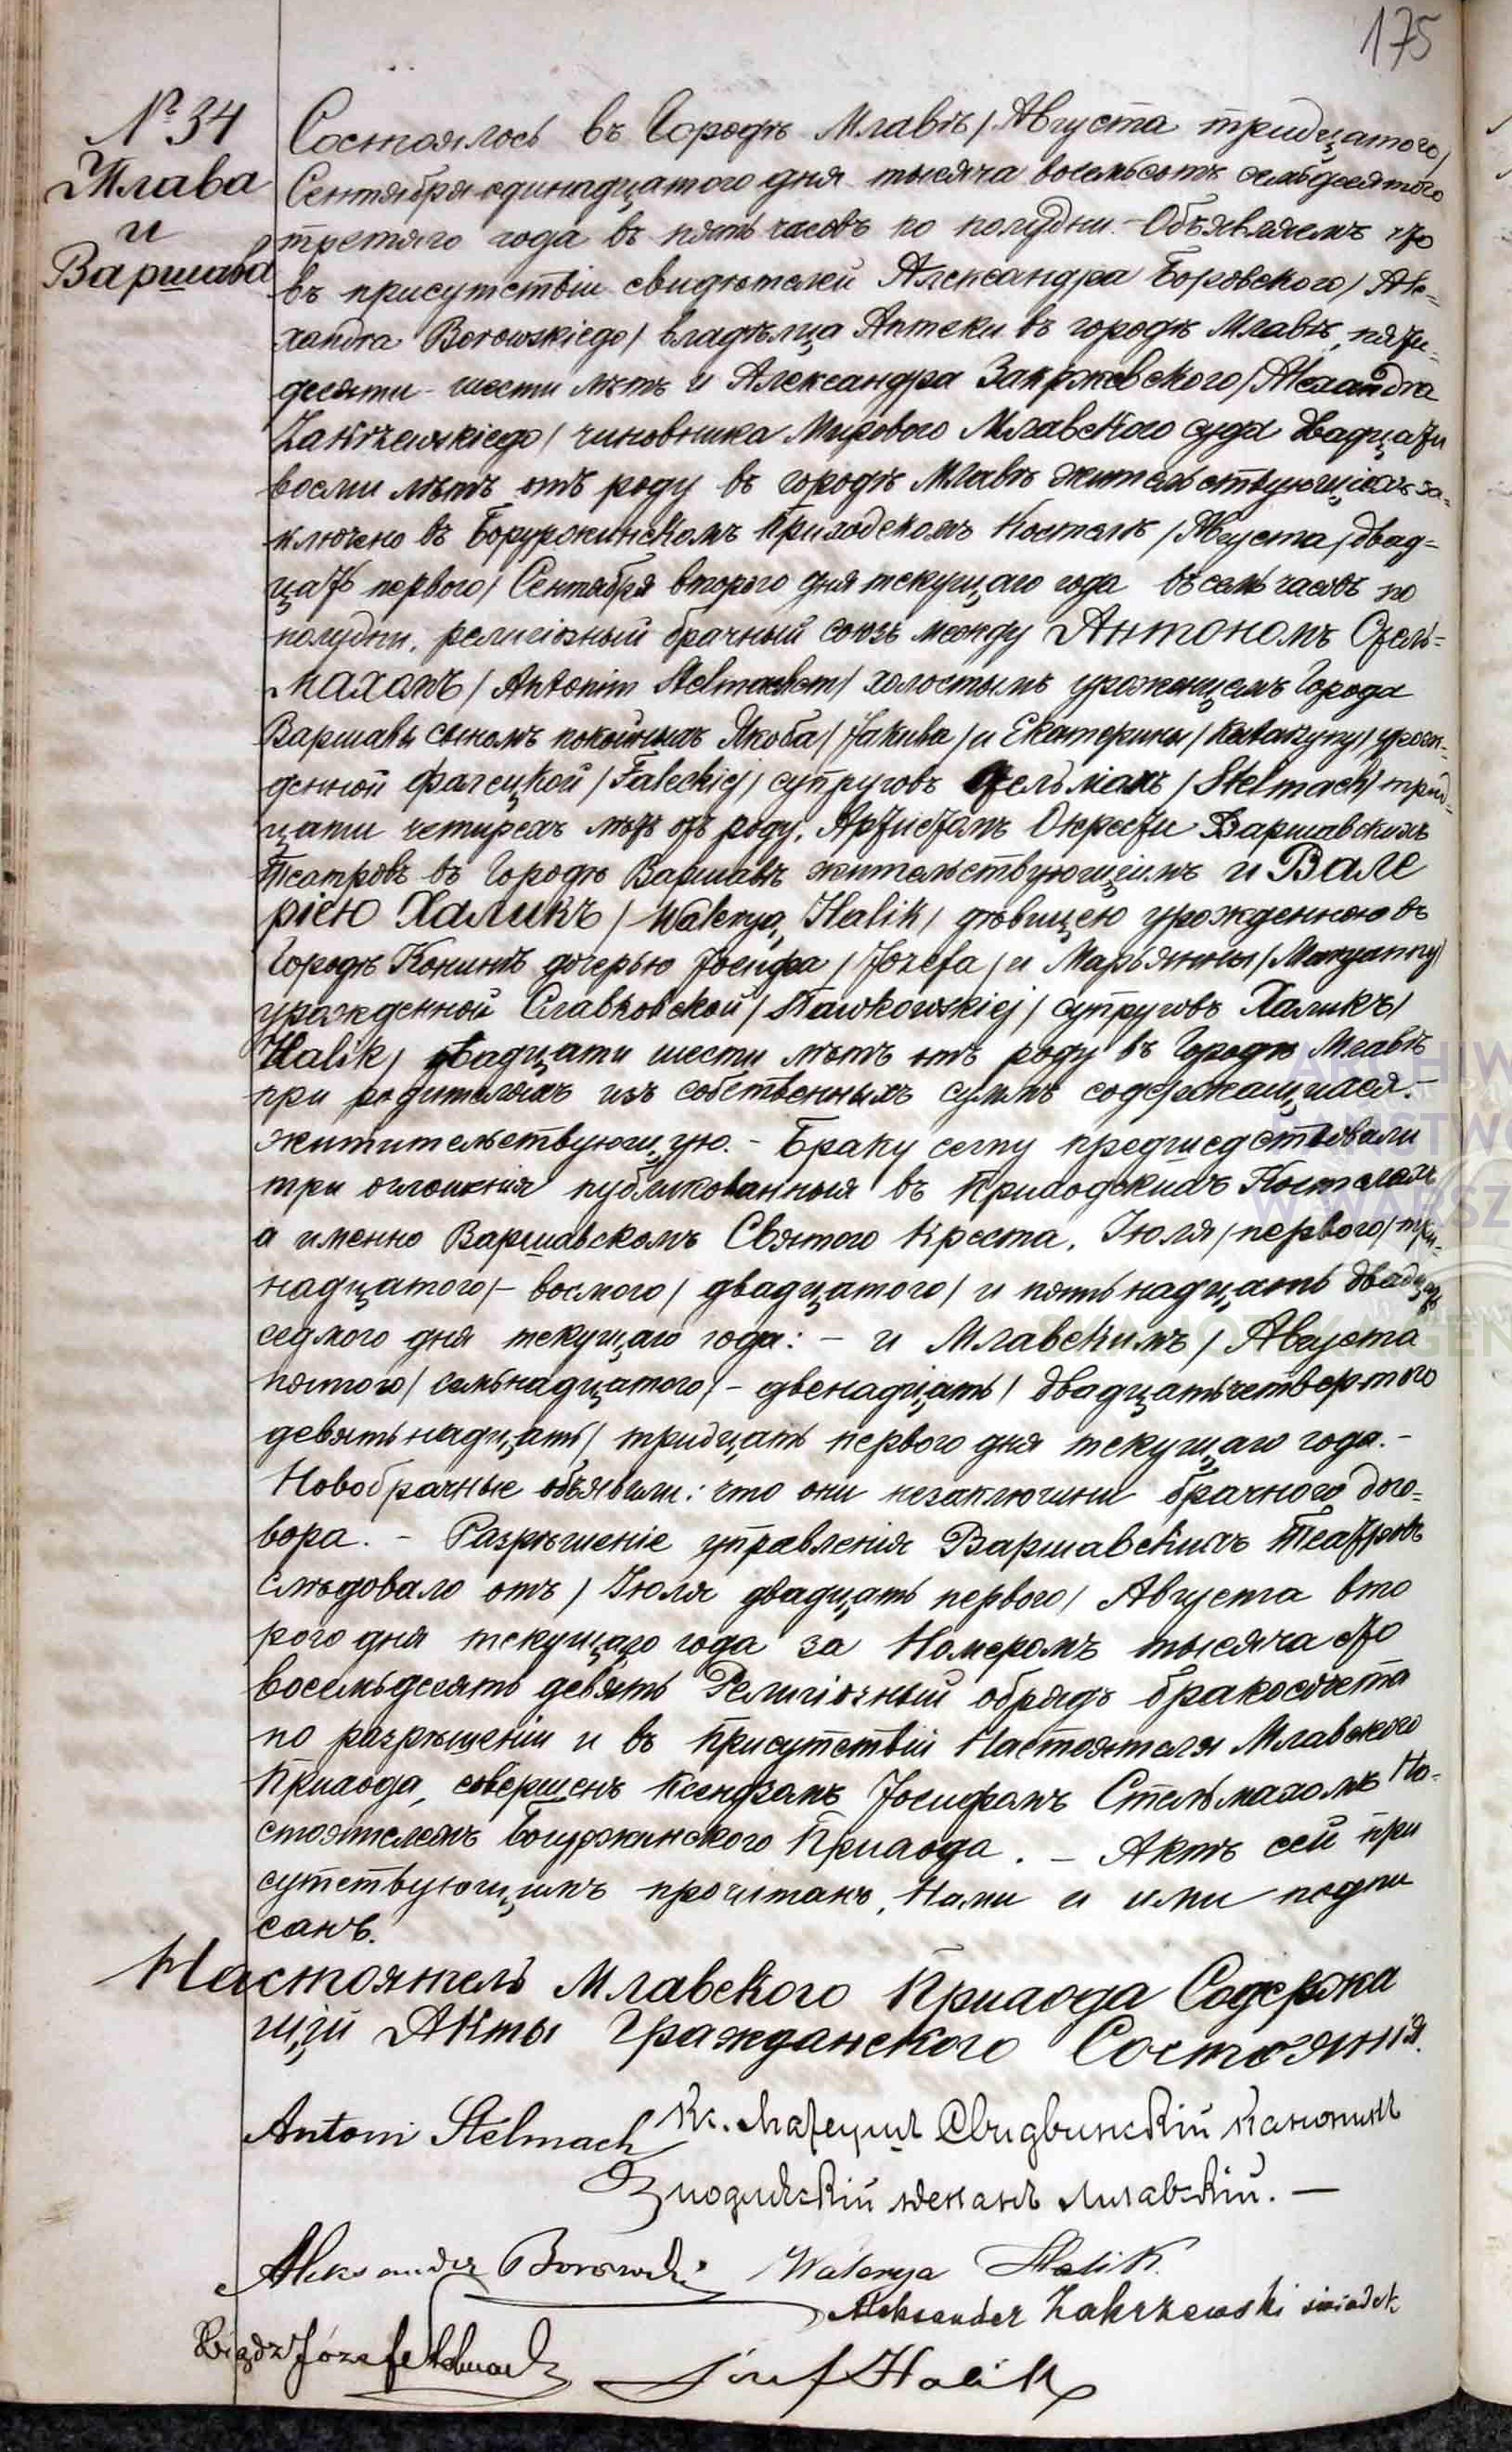 175
№ 34
Млава
и
Варшава
Состоялось въ Городѣ Млавѣ / Августа тридцатого /
Сентября одинадцатого дня тысяча восемьсотъ семьдесятого
третяго года въ пять часовъ по полудни. - Объявляемъ что
въ присутствіи свидѣтелей Александра Боровского / Ale=
xandra Borowskiego / владѣльца Аптеки въ городѣ Млавѣ, пяти-
десяти - шести лѣтъ и Александра Закржевского / Alexandra
Zakrzewskiego / чиновника Мирового Млавского суда двадцати
восми лѣтъ отъ роду въ городѣ Млавѣ жительствующихъ за-
ключено въ Приходскомъ Костелѣ / Августа / двад=
цать первого / Сентября второго дня текущаго года въ семь часовъ по
полудни, религіозный брачный союзъ между Антономъ Стель=
махомъ / Antonim Stelmachem / холостымъ уроженцемъ Города
Варшавы сыномъ покойныхъ Якоба / Jakuba / и Екатерины / Katarzyny / урож-
денной Фалецкой / Faleckiej / супруговъ Стельмахъ / Stelmach / трид-
цати четырехъ лѣтъ отъ роду, Артистомъ Окрестри Варшавскихъ
Театровъ въ Городѣ Варшавѣ жительствующимъ и Вале
ріею Халикъ / Waleryą Halik / дѣвицею урожденною въ
Городѣ Конинѣ дочерью Іосифа / Józefa / и Марьянны / Maryanny /
урожденной Славковской / Sławkowskiej / супруговъ Халикъ /
Halik / двадцати шести лѣтъ отъ роду въ Городѣ Млавѣ
при родителяхъ изъ собственныхъ суммъ содержащиася -
жительствующую. - Браку сему предшедствовали
три оглошенія публикованныя въ Приходскихъ Костелахъ
а именно Варшавскомъ Святого Креста, Іюля / первого / три-
надцатого / - восмого / двадцатого / и пятьнадцать двадцать
седмого дня текущаго года: - и Млавскимъ / Августа
пятого / семьнадцатого / - двенадцать / двадцатьчетвертого
девятьнадцать / тридцать первого дня текущаго года. -
Новобрачные объявили: что они незаключили брачного дого=
вора. - Разрѣшеніе управленія Варшавскихъ Театровъ
слѣдовало отъ / Іюля двадцать первого / Августа вто
рого дня текущаго года за Номеромъ тысяча сто
восемьдесять девять Религіозный обрядъ бракосочета
по разрѣшеніи и въ присутствіи Настоятеля Млавского
Прихода, совершенъ Ксендзомъ Іосифомъ Стельмахомъ На-
стоятелемъ Прихода. - Актъ сей при
сутствующимъ прочитанъ, Нами и ими подпи
санъ.
Настоятель Млавского Прихода Содержа
щій Акты Гражданского Состоянія.
Antoni Stelmach Кс. Матеушъ Свидвинскій каноникъ
деканъ млавскій. -
Aleksander Borowski Walerya Halik
Aleksander Zakrzewski świadek
Ksiądz Józef Stelmach Józef Halik
ARCHIW
PAŃSTWO
W WARSZ